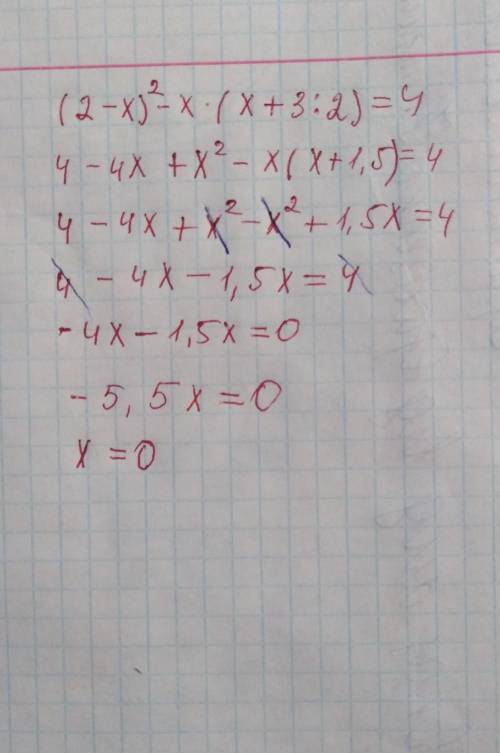 (2-x)²-x·(x+3:2)=4
4-4x+x²-x(x+1,5)=4
4-4x+x²-x²+1,5x=4
4-4x-1,5x=4
-4x-1,5x=0
-5,5x=0
x=0